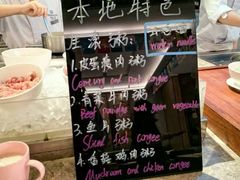 本地特色
生滚粥:
1.皮蛋瘦肉粥
Century and pork congee
2.青菜牛肉粥
Beef porridge with green vegetable
3.鱼片粥
Sliced fish congee
4.香菇鸡肉粥
Mushroom and chicken congee